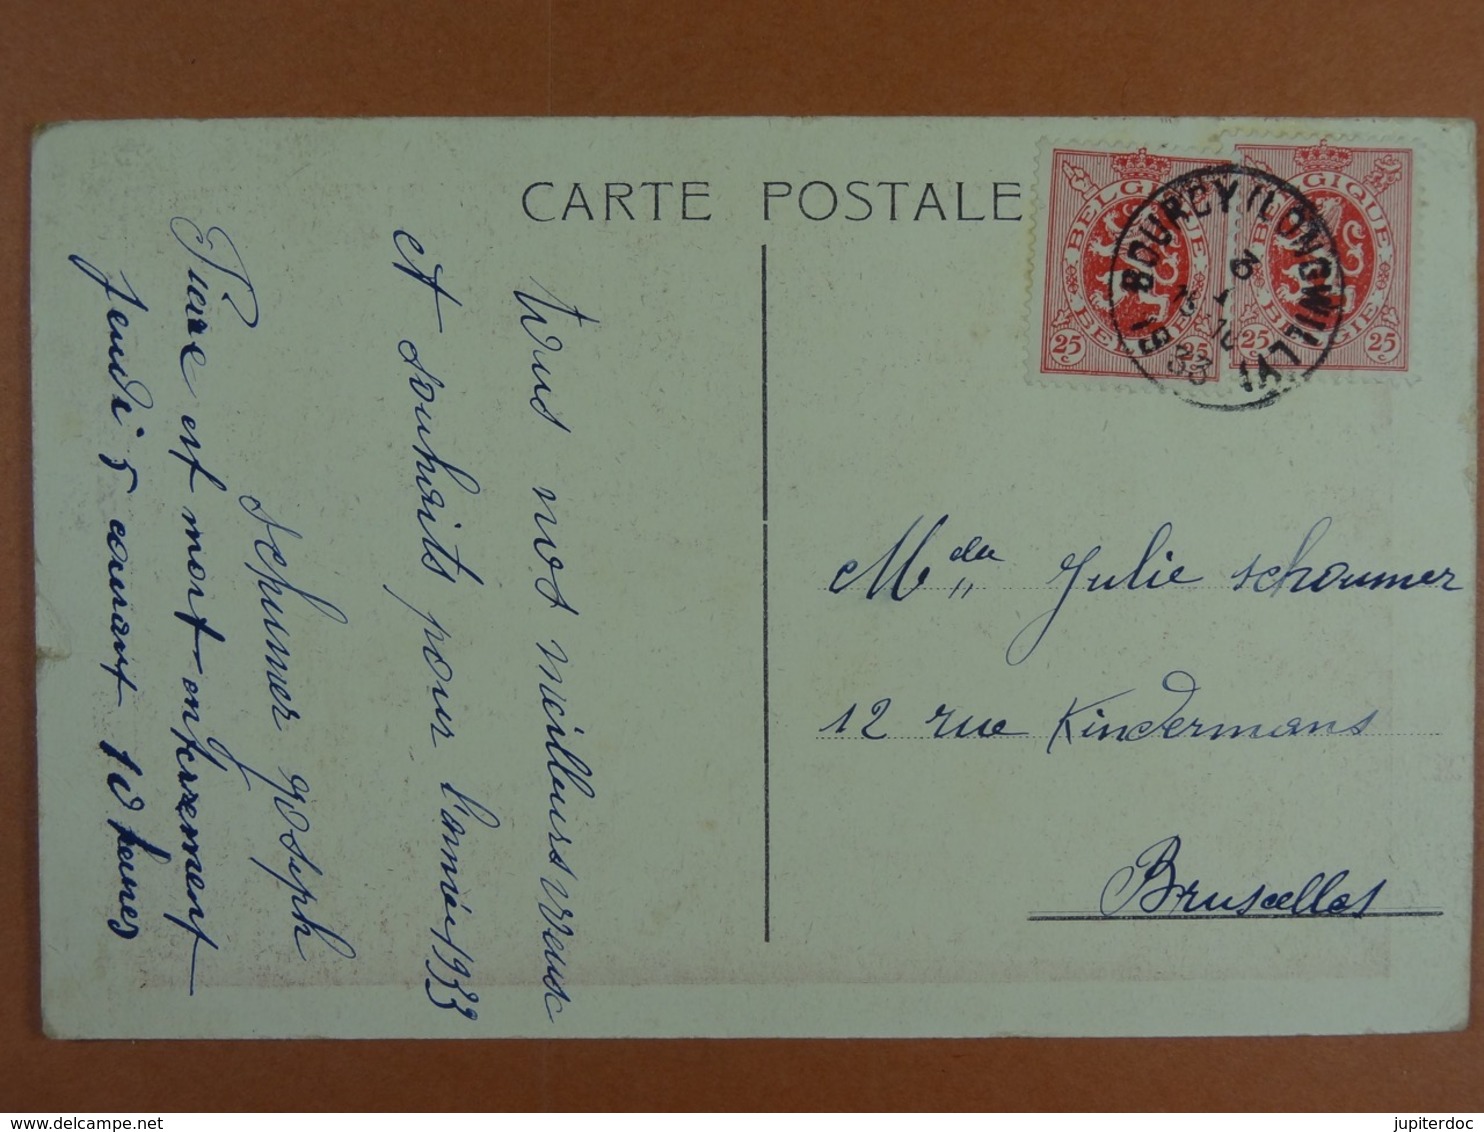 CARTE POSTALE
BELGIQUE
BELGIË
25 c 25 c
BELGIQUE
BELGIE
25 c 25 c
BOURCY (LONGWILLY)
3
33
Tous nos meilleurs veux
et souhaits pour l'année 1933
Schumer Joseph
est mort enterrement
jeudi 5 courant 10 heures
Mdelle Julie Schoumer
12 rue Kindermans
Bruxelles
jupiterdoc